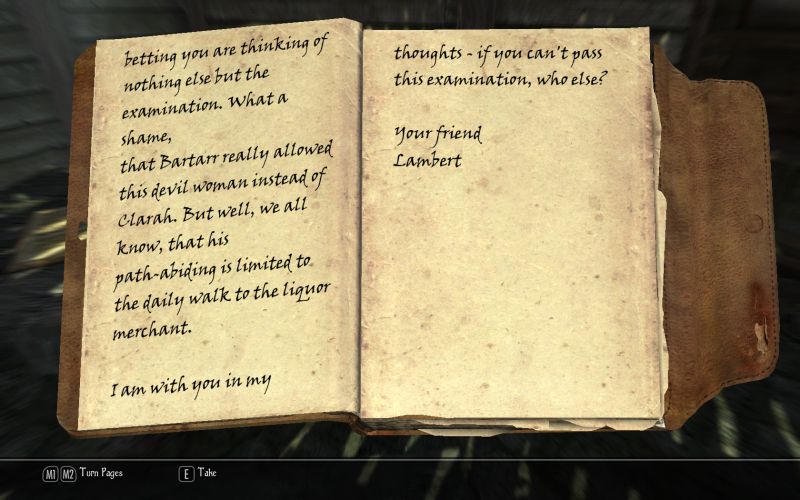 betting you are thinking of
nothing else but the
examination. What a
shame,
that Bartarr really allowed
this devil woman instead of
Clarah. But well, we all
know, that his
path-abiding is limited to
the daily walk to the liquor
merchant.
I am with you in my
thoughts - if you can't pass
this examination, who else?
Your friend
Lambert
M1 M2 Turn Pages
E Take